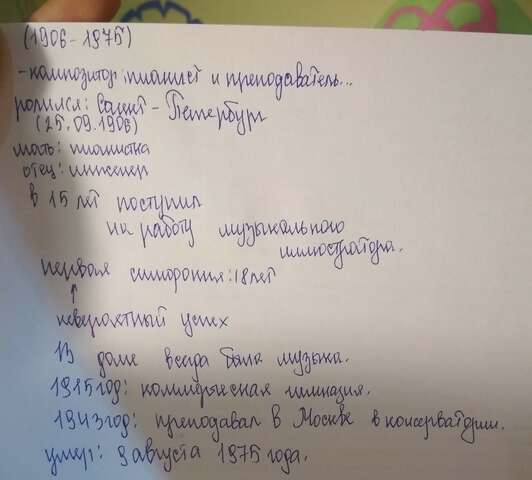 (1906-1975)
-композитор, пианист и преподаватель...
родился: Санкт-Петербург
(25.09.1906)
мать: пианистка
отец: инженер
в 15 лет поступил
на работу музыкального
иллюстратора.
первая симфония: 18 лет
↑
невероятный успех
В доме всегда была музыка.
1915 год: коммерческая гимназия.
1943 год: преподавал в Москве в консерватории.
умер: 9 августа 1975 года.